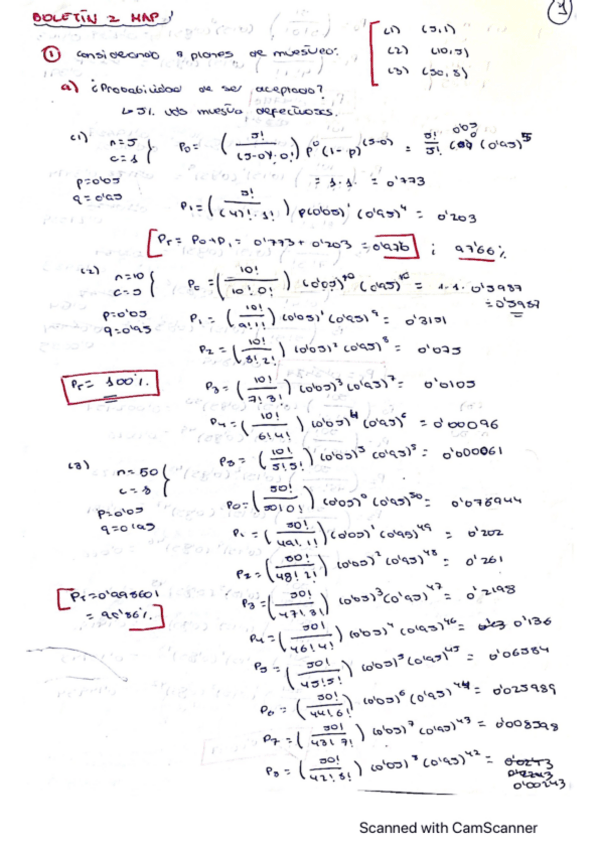 1
BOLETÍN 2 MAP
① Considerando 3 planes de muestreo:
(1) (5,1)
(2) (10,5)
(3) (50,8)
a) ¿Probabilidad de ser aceptado?
↳ 5% uds muestra defectuosas.
(1) n=5
c=1
p=0'05
q=0'95
P0= (5!/(5-0)!·0!) p^0 (1-p)^(5-0) = 5!/5! (0'05)^0 (0'95)^5
= 1·1· = 0'773
P1= (5!/(4)!·1!) p(0'05)^1 (0'95)^4 = 0'203
Pr = P0+P1 = 0'773+0'203 = 0'976 ; 97'66%
(2) n=10
c=5
p=0'05
q=0'95
P0 = (10!/10!·0!) (0'05)^0 (0'95)^10 = 1·1·0'5987
=0'5987
P1 = (10!/9!·1!) (0'05)^1 (0'95)^9 = 0'3151
P2 = (10!/8!·2!) (0'05)^2 (0'95)^8 = 0'075
Pr= 100%
P3 = (10!/7!·3!) (0'05)^3 (0'95)^7 = 0'0105
P4= (10!/6!4!) (0'05)^4 (0'95)^6 = 0'00096
P5 = (10!/5!5!) (0'05)^5 (0'95)^5 = 0'000061
(3) n=50
c=8
p=0'05
q=0'95
P0= (50!/50!0!) (0'05)^0 (0'95)^50 = 0'076944
P1 = (50!/49!·1!) (0'05)^1 (0'95)^49 = 0'202
P2 = (50!/48!2!) (0'05)^2 (0'95)^48 = 0'261
Pr=0'998601
= 99'86%
P3 = (50!/47!3!) (0'05)^3 (0'95)^47 = 0'2198
P4 = (50!/46!4!) (0'05)^4 (0'95)^46 = 0'136
P5 = (50!/45!5!) (0'05)^5 (0'95)^45 = 0'06584
P6 = (50!/44!6!) (0'05)^6 (0'95)^44 = 0'025989
P7 = (50!/43!7!) (0'05)^7 (0'95)^43 = 0'008598
P8 = (50!/42!8!) (0'05)^8 (0'95)^42 = 0'0243
0'00243
Scanned with CamScanner